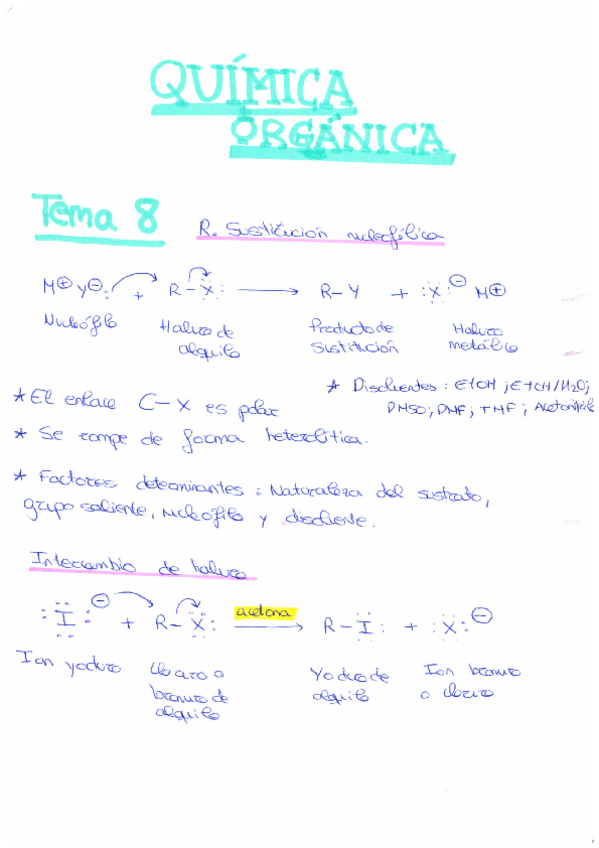 QUÍMICA
ORGÁNICA
Tema 8
R. Sustitución nucleofílica
M⊕ Y⊖: + R-X: → R-Y + :X:⊖ M⊕
Nucleófilo Haluro de alquilo Producto de sustitución Haluro metálico
* El enlace C-X es polar
* Disolventes: EtOH; EtOH/H2O;
DMSO; DMF; THF; Acetonitrilo
* Se rompe de forma heterolítica.
* Factores determinantes: Naturaleza del sustrato,
grupo saliente, nucleófilo y disolvente.
Intercambio de haluro
:I:⊖ + R-X: acetona → R-I: + :X:⊖
Ion yoduro Cloruro o bromuro de alquilo Yoduro de alquilo Ion bromuro o cloruro